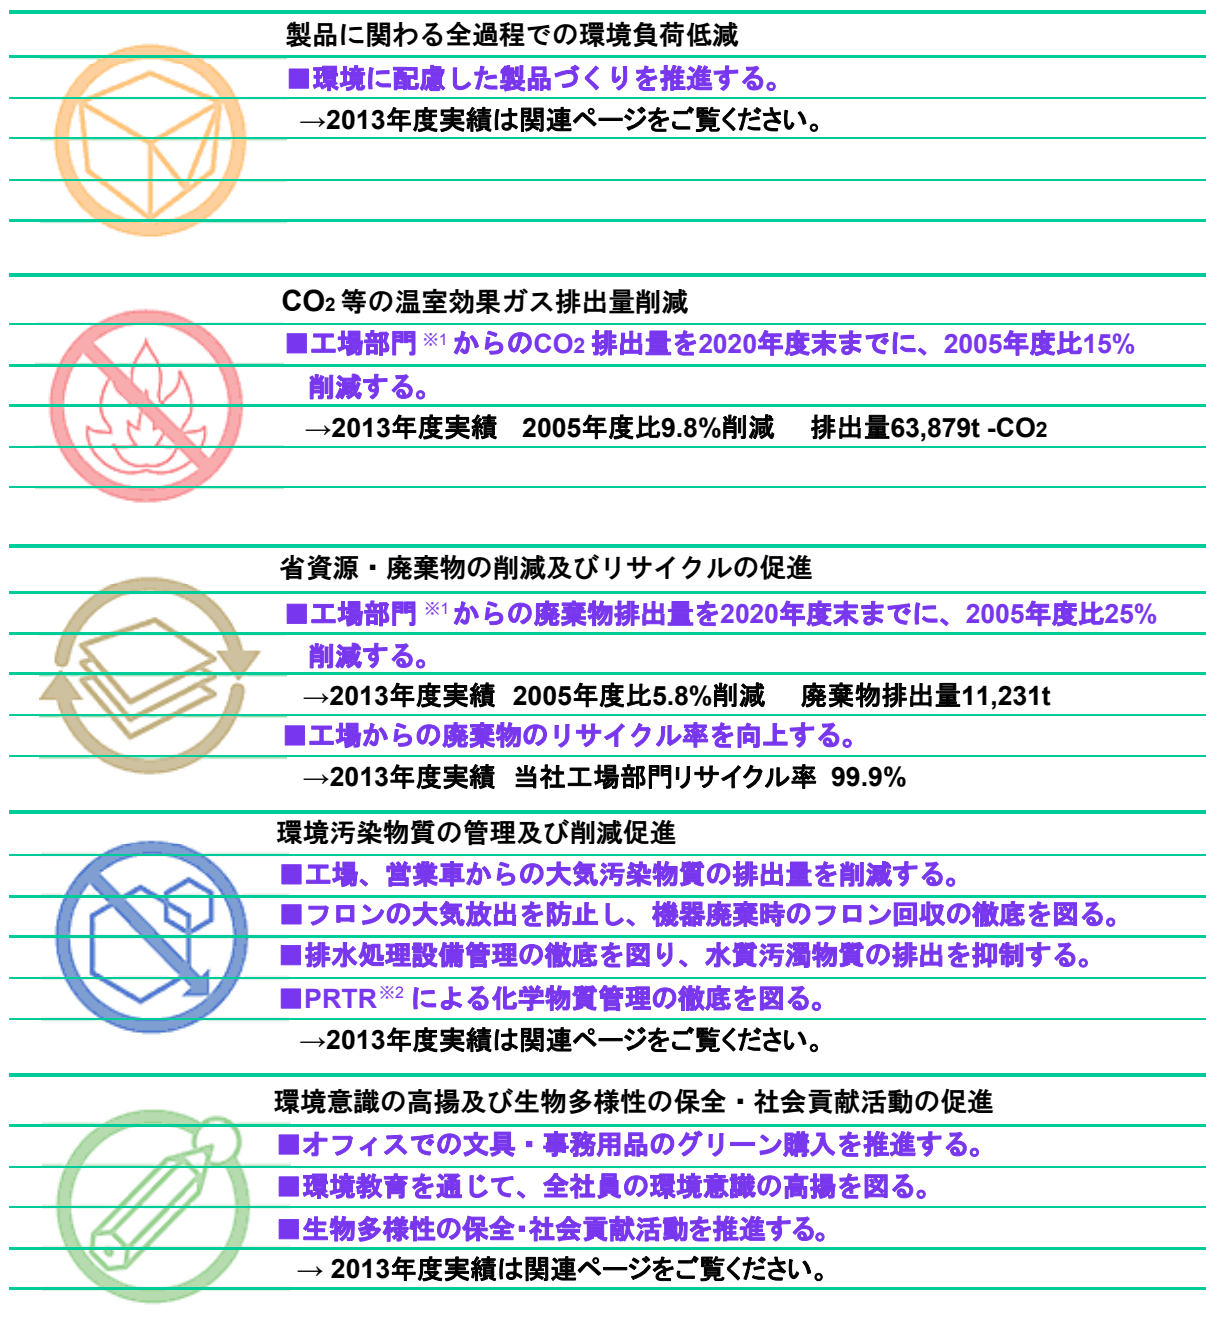 製品に関わる全過程での環境負荷低減
■環境に配慮した製品づくりを推進する。
→2013年度実績は関連ページをご覧ください。
CO2 等の温室効果ガス排出量削減
■工場部門 ※1 からのCO2 排出量を2020年度末までに、2005年度比15%
削減する。
→2013年度実績　2005年度比9.8%削減　排出量63,879t -CO2
省資源・廃棄物の削減及びリサイクルの促進
■工場部門 ※1 からの廃棄物排出量を2020年度末までに、2005年度比25%
削減する。
→2013年度実績　2005年度比5.8%削減　廃棄物排出量11,231t
■工場からの廃棄物のリサイクル率を向上する。
→2013年度実績　当社工場部門リサイクル率 99.9%
環境汚染物質の管理及び削減促進
■工場、営業車からの大気汚染物質の排出量を削減する。
■フロンの大気放出を防止し、機器廃棄時のフロン回収の徹底を図る。
■排水処理設備管理の徹底を図り、水質汚濁物質の排出を抑制する。
■PRTR※2 による化学物質管理の徹底を図る。
→2013年度実績は関連ページをご覧ください。
環境意識の高揚及び生物多様性の保全・社会貢献活動の促進
■オフィスでの文具・事務用品のグリーン購入を推進する。
■環境教育を通じて、全社員の環境意識の高揚を図る。
■生物多様性の保全・社会貢献活動を推進する。
→ 2013年度実績は関連ページをご覧ください。